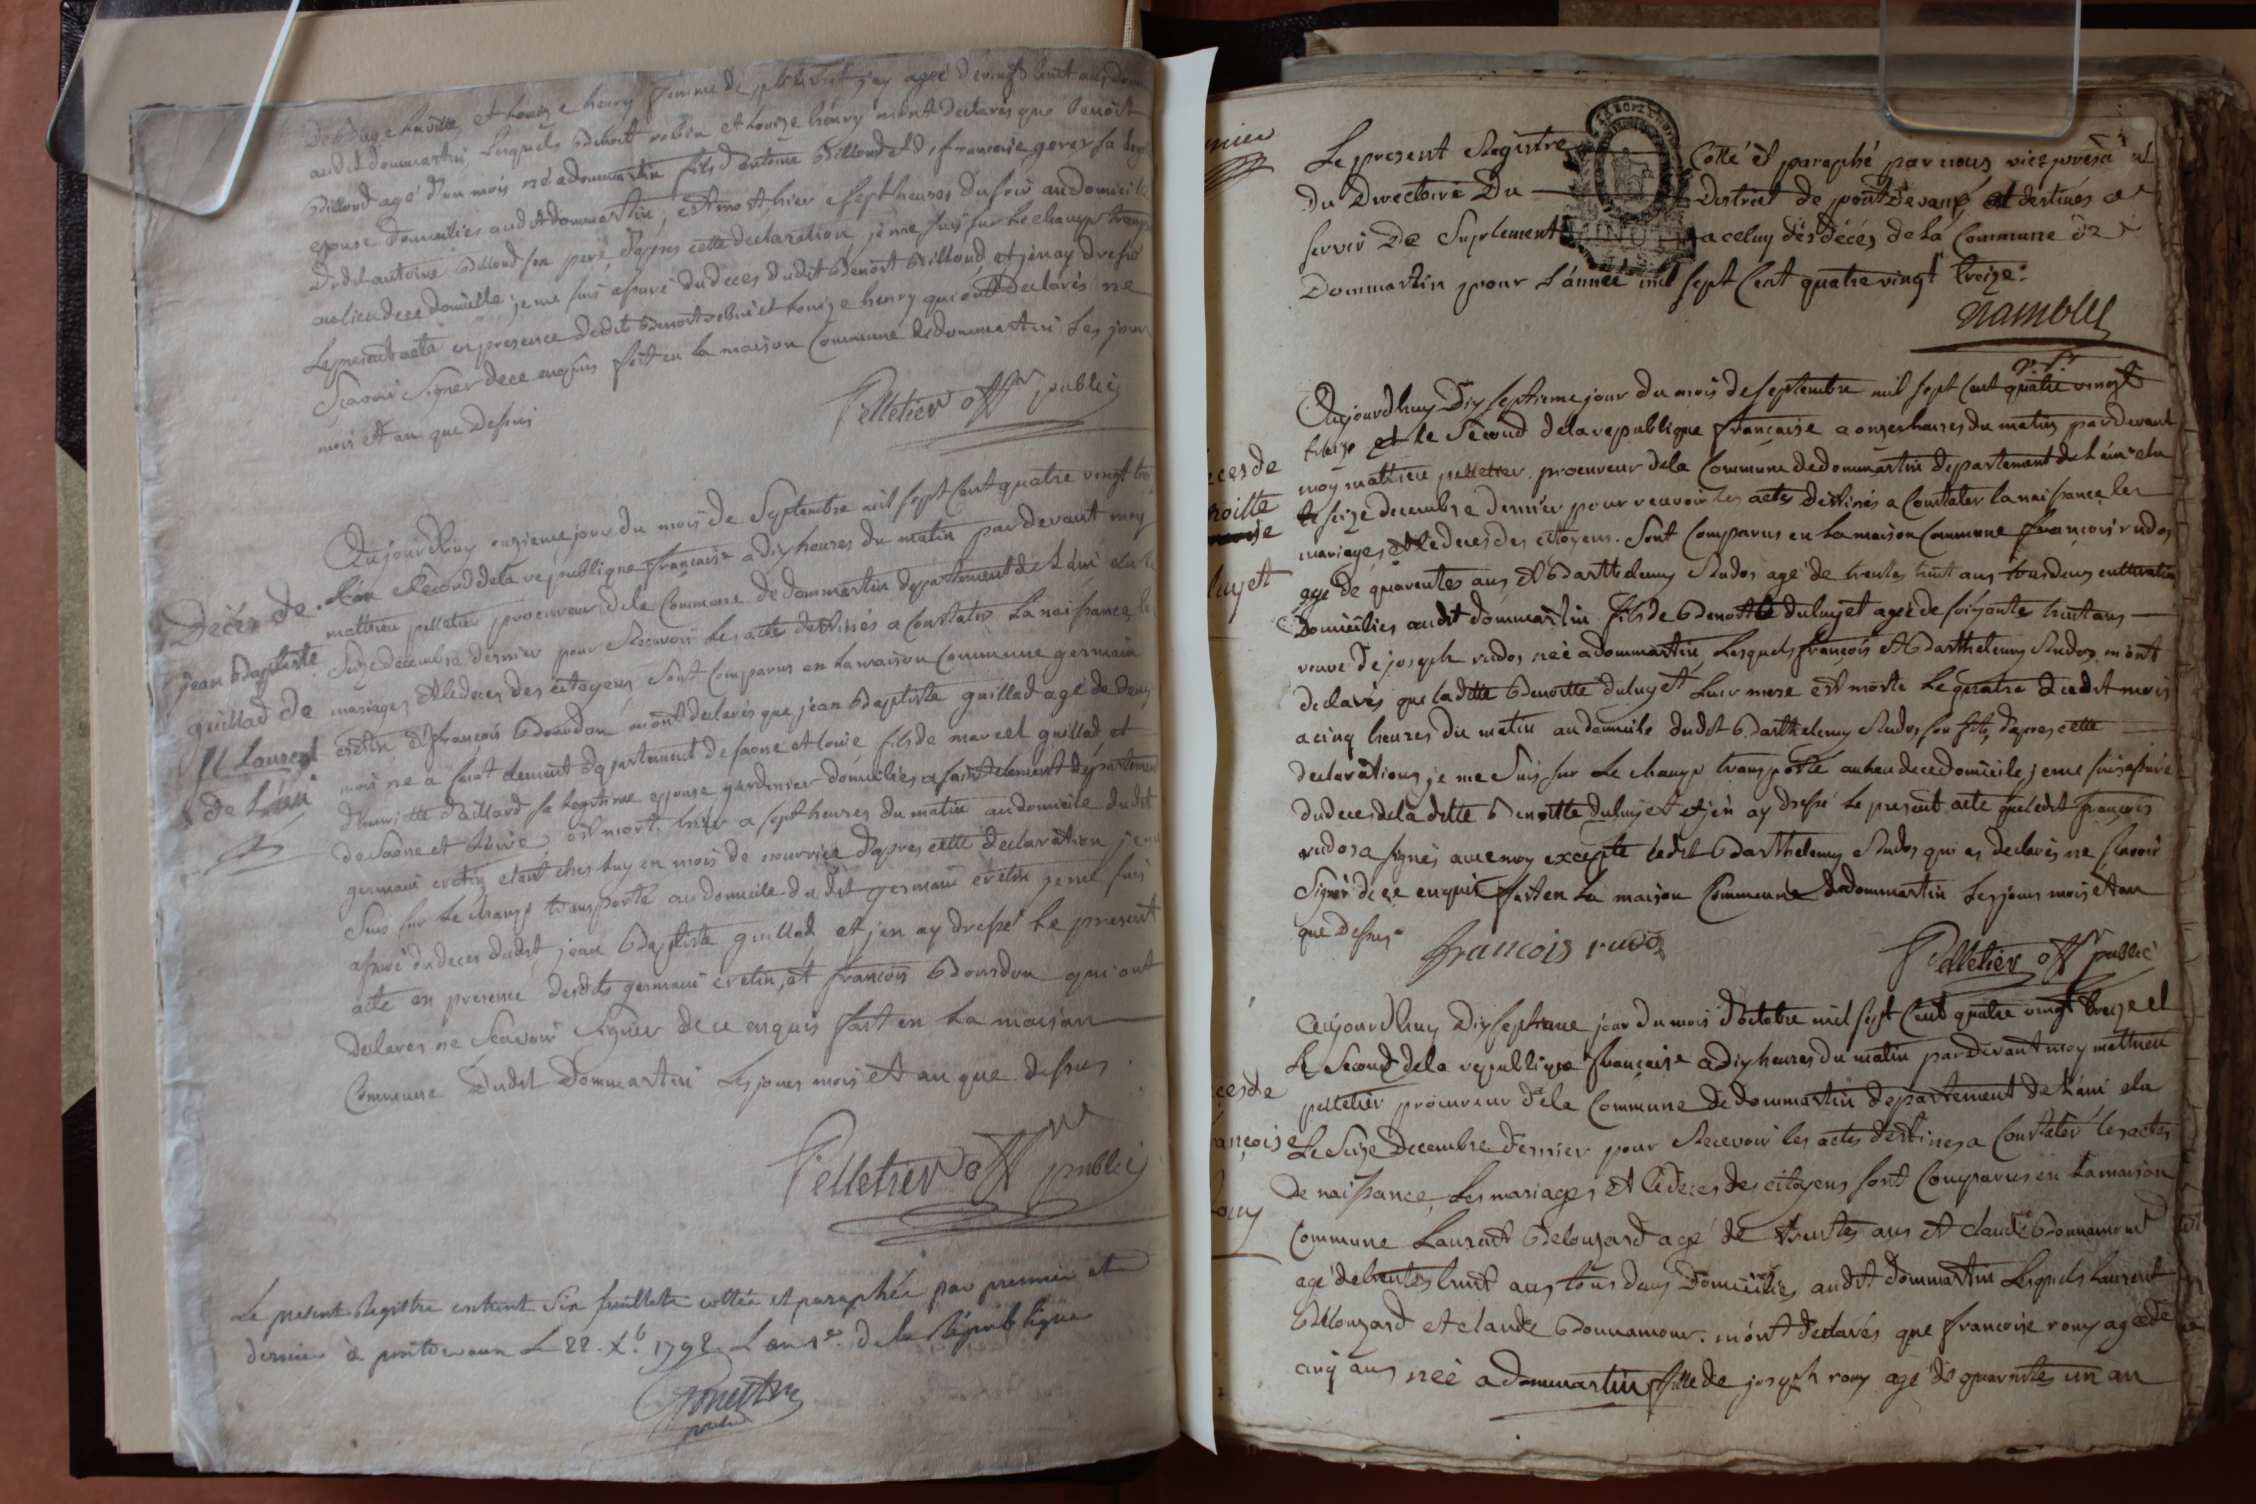 audit dommartin, Lesquels Benoit robin et Louize henry m'ont declarés que benoit
Billoud agé d'un mois né a dommartin fils d'antoine Billoud et de francoise
epouse domiciliés audit dommartin, est mort hier a sept heures du soir au domicile
Dudit antoine Billoud son pere, d'apres cette declaration, je me suis sur le champ transporté
au lieu de ce domicille, je me suis assuré du deces dudit Benoit Billoud et j'en ay dressé
Le present acte en presence desdits Benoit robin et Louize henry qui ont declarés ne
Scavoir Signer de ce enquis fait en la maison Commune de dommartin Les jour
mois et an que dessus
Pelletier offr public
Decés de
jean Baptiste
guillad de
St Laurent
de L'ain
Aujourdhuy onzieme jour du mois de Septembre mil sept Cent quatre vingt
L'an Second de la republique francaise a dix heures du matin par devant moy
mathieu pelletier procureur de la Commune de dommartin departement de L'ain elu le
Seize decembre dernier pour Recevoir Les acte destinés a Constater La naissance, les
mariages, et le deces des citoyens Sont Comparus en La maison Commune germain
cretin et francois Bourdon m'ont declarés que jean Baptiste guillad agé de deux
mois né a saint clement departement de saone et loire fils de marcel guillad et
d'henriette Paillard sa legitime epouse jardinier domiciliés a saint clement departement
de Saone et Loire, est mort hier a sept heures du matin au domicile dudit
germain cretin etant ches luy en mois de nourrice d'apres cette declaration je me
Suis sur Le champ transporté au domicile du dit germain cretin je me suis
assuré du deces dudit jean Baptiste guillad et j'en ay dressé Le present
acte en presence desdits germain cretin, et francois Bourdon qui ont
declarés ne Scavoir Signer de ce enquis fait en La maison
Commune dudit dommartin Les jours mois et an que dessus
Pelletier offr public
Le present Registre contient Six feuillets cottés et paraphés par premier et
dernier à pontdevaux Le 22. Xb. 1792. L'an 1er. de la République
Le present Registre Cotté et paraphé par nous vice president
du Directoire Du District de pont devaux et destinés a
servir De Suplement a celuy des decés de La Commune de
Dommartin pour L'année mil sept Cent quatre vingt treize.
MINUTE
Aujourdhuy Dix septieme jour du mois de septembre mil sept Cent quatre vingt
treize et le Second de la republique francaise a onze heures du matin par devant
moy mathieu pelletier procureur de la Commune de dommartin departement de L'ain elu
le seize decembre dernier pour recevoir les actes destinés a Constater la naissance, les
mariages, et le deces des citoyens. Sont Comparus en La maison Commune francois rudos
agé de quarentes ans, et Barthelemy Rudos agé de trentes huit ans tous deux cultivateurs
Domiciliés audit dommartin fils de Benoitte duluyet ageé de soixante huit ans
veuve de joseph rudos neé a dommartin, Lesquels francois et Barthelemy Rudos m'ont
declarés que laditte Benoitte duluyet Leur mere est morte Le quatre dudit mois
a cinq heures du matin au domicile dudit Barthelemy Rudos son fils, d'apres cette
declarations, je me Suis sur Le champ transporté au lieu de ce domicile, je me suis assuré
du deces de la ditte Benoitte duluyet et j'en ay dressé Le present acte que ledit francois
rudos a signés avec moy excepté ledit Barthelemy Rudos qui a declarés ne scavoir
Signer de ce enquis fait en La maison Commune de dommartin Les jours mois et an
que dessus.
francois rudos
Pelletier offr public
Aujourdhuy Dix septieme jour du mois d'octobre mil sept Cent quatre vingt treize et
Le Second de la republique francaise a dix heures du matin par devant moy mathieu
pelletier procureur de la Commune de dommartin departement de L'ain elu
Le Seize Decembre dernier pour Recevoir les actes destinés a Constater les actes
De naissance, Les mariages, et le deces des citoyens sont Comparus en La maison
Commune Laurent Belouzard agé de trentes ans et claude Bonnamour
agé de trentes huit ans tous deux Domiciliés audit dommartin Lesquels Laurent
Belouzard et claude Bonnamour. m'ont declarés que francoise rouy ageé de
cinq ans neé a dommartin fille de joseph rouy agé de quarantes un an